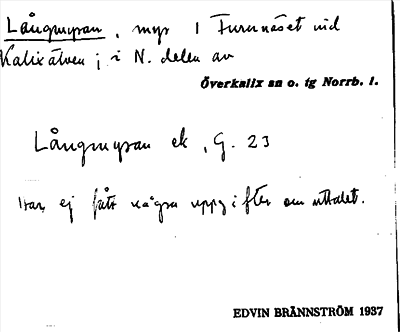 Långmyran, myr i Furunäset vid
Kalixälven i N. delen av
Överkalix sn o. tg Norrb. l.
Långmyran ek, G. 23
Har ej fått några uppgifter om uttalet.
EDVIN BRÄNNSTRÖM 1937